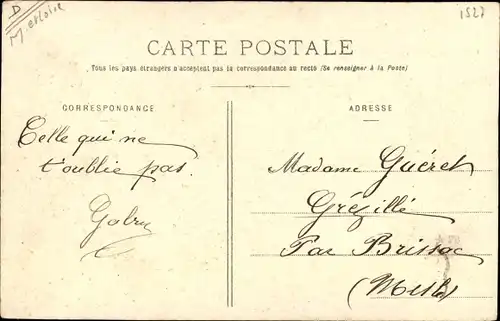 D
M. et Loire
1527
CARTE POSTALE
Tous les pays étrangers n'acceptent pas la correspondance au recto (Se renseigner à la Poste)
CORRESPONDANCE
ADRESSE
Celle qui ne
t'oublie pas.
Madame Guéret
Grézillé
Par Brissac